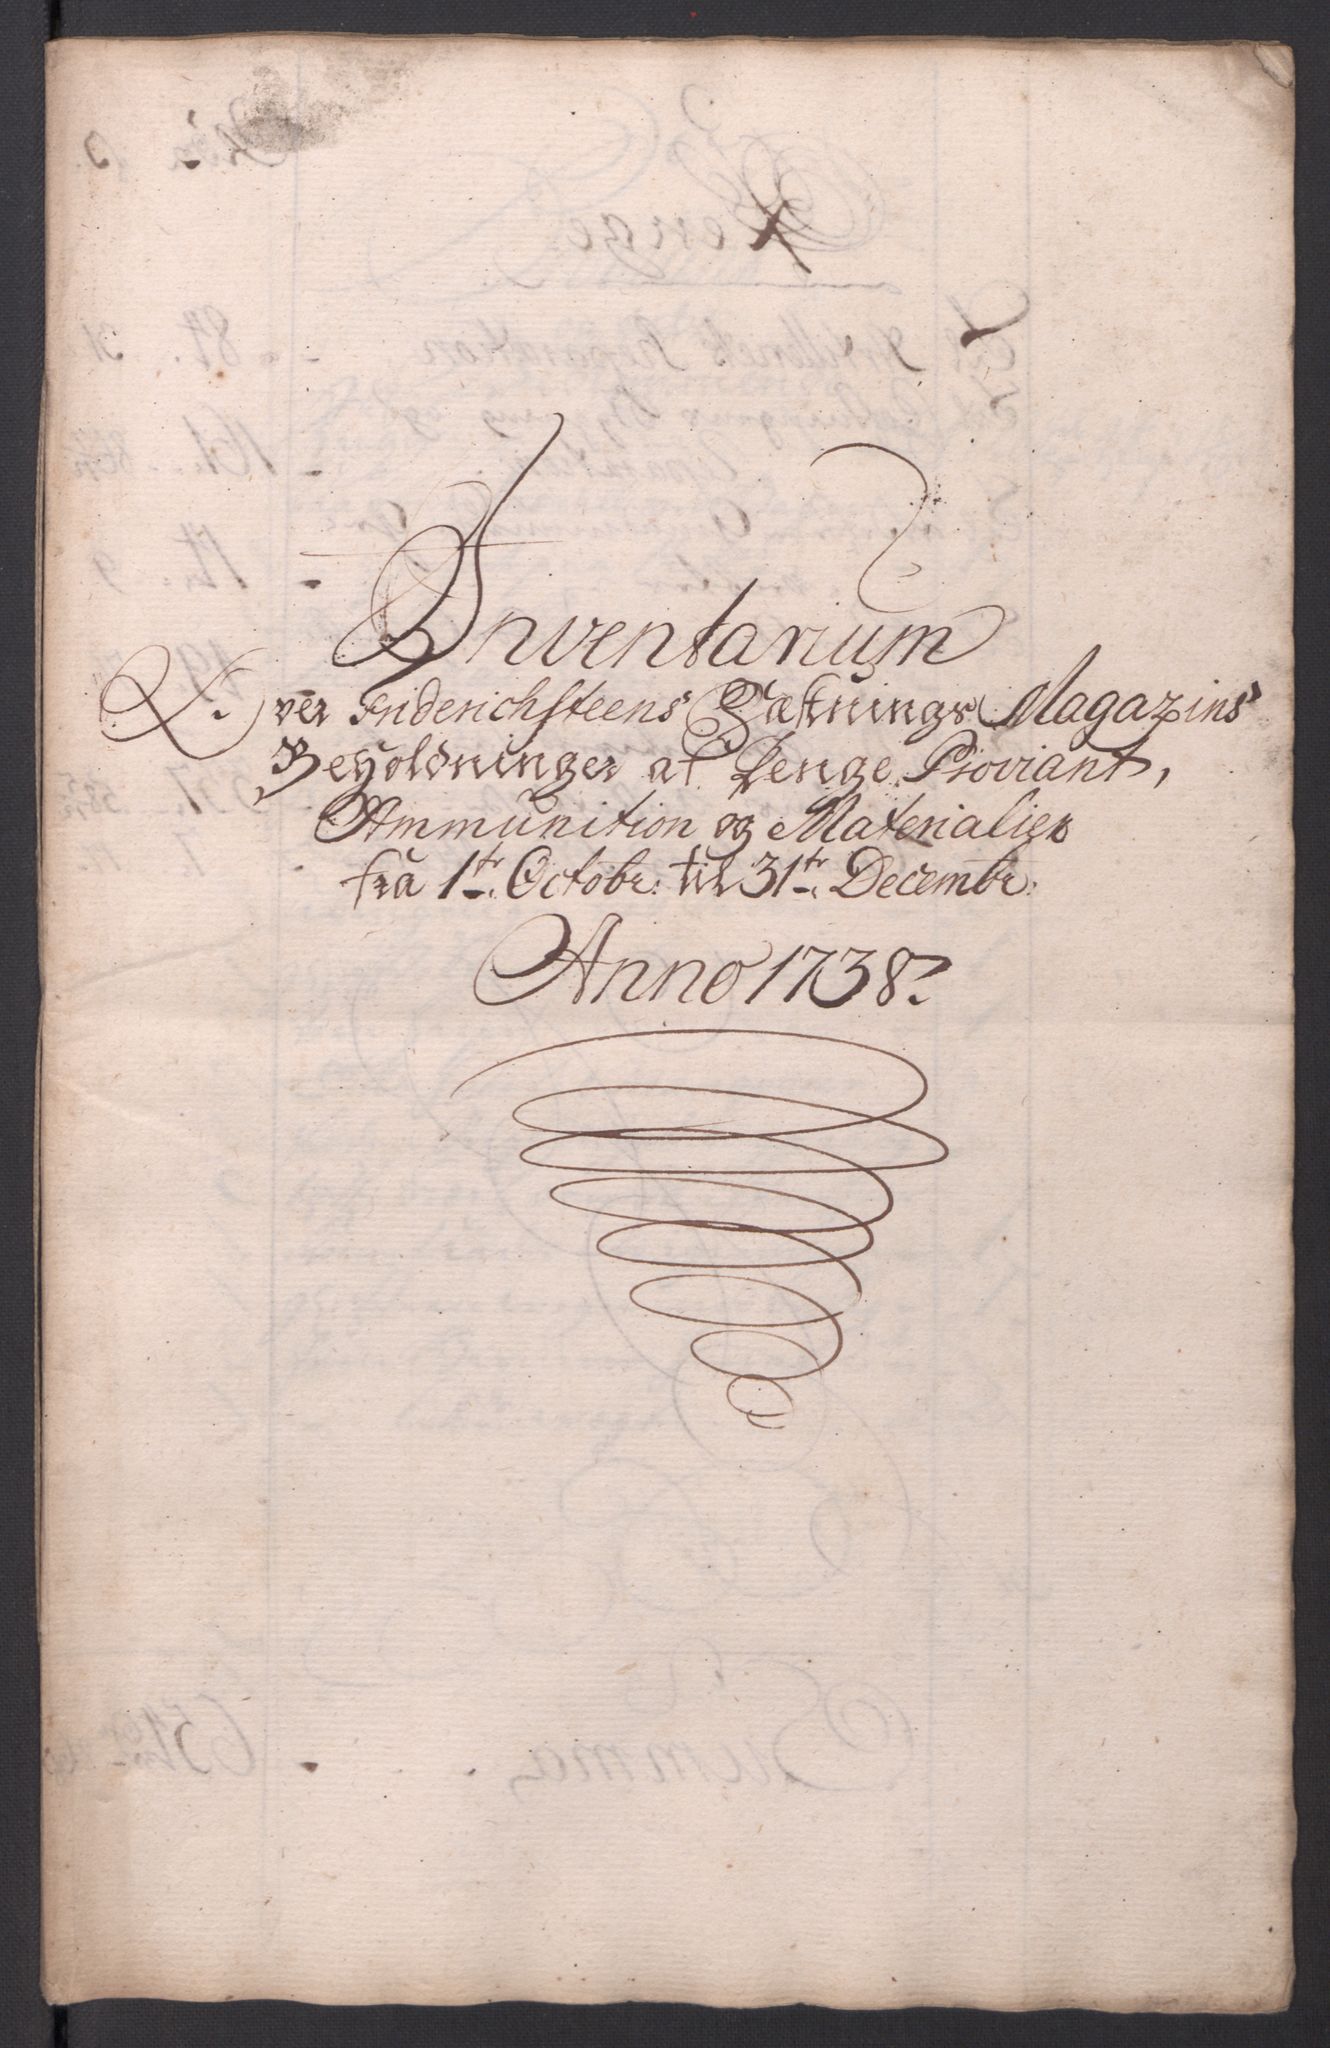 Inventarium
Over Friderichsteens Fæstnings Magazins
Beholdninger af Penge, Proviant,
Ammunition og Materialier
fra 1te. Octobr: til 31te. Decembr:
Anno 1738.